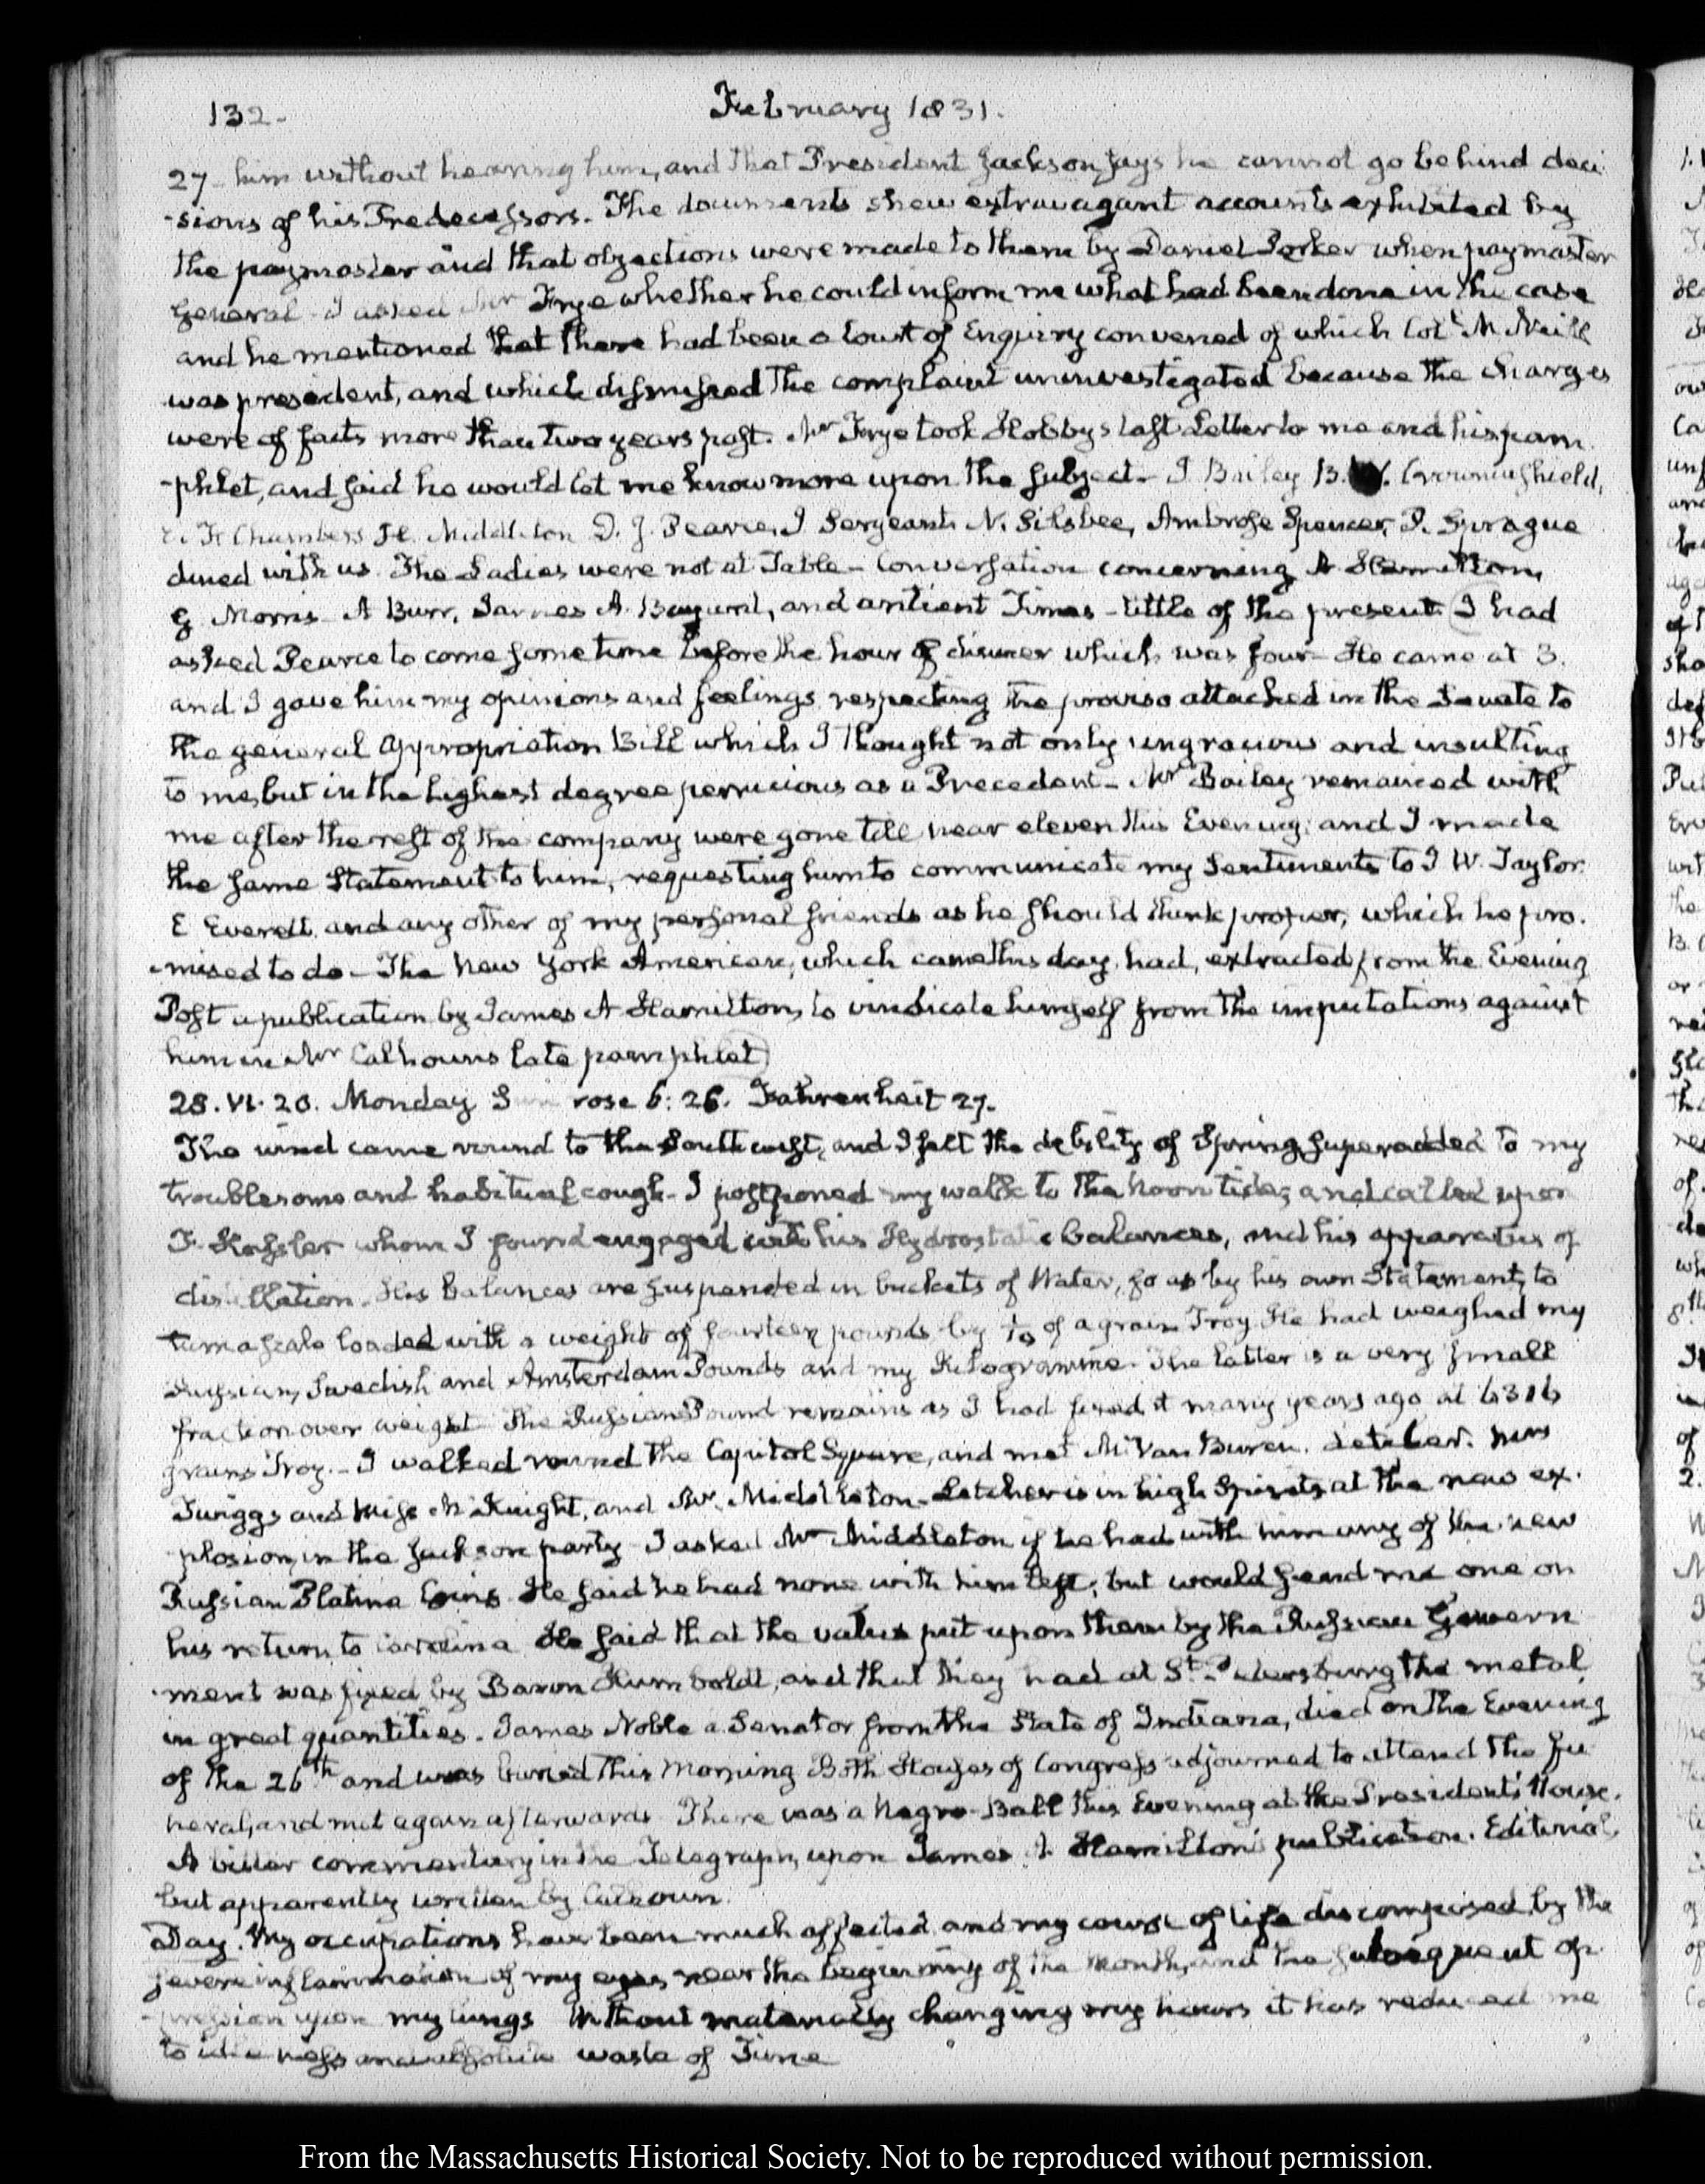 132.
February 1831.
27 him without hearing him, and that President Jackson says he cannot go behind deci
-sions of his Predecessors. The documents shew extravagant accounts exhibited by
the paymaster and that objections were made to them by Daniel Parker when paymaster
General - I asked Mr Frye whether he could inform me what had been done in the case
and he mentioned that there had been a Court of Enquiry convened of which Colt. McNeill
was president, and which dismissed the complaint uninvestigated because the charges
were of facts more than two years past. Mr Frye took Hobby's last Letter to me and his pam
-phlet, and said he would let me know more upon the subject - J Bailey B. W. Crowninshield,
E. F. Chambers H. Middleton D. J. Pearce, J Sergeant N. Silsbee, Ambrose Spencer, P. Sprague
dined with us. The Ladies were not at Table - Conversation concerning A Hamilton,
G Morris A Burr, James A. Bayard, and antient Times - little of the present. I had
asked Pearce to come sometime before the hour of dinner which was four - He came at 3.
and I gave him my opinions and feelings respecting the proviso attached in the Senate to
the general Appropriation Bill which I thought not only ungracious and insulting
to me, but in the highest degree pernicious as a Precedent - Mr Bailey remained with
me after the rest of the company were gone till near eleven this Evening: and I made
the same Statement to him, requesting him to communicate my Sentiments to J W. Taylor
E Everett, and any other of my personal friends as he should think proper, which he pro.
-mised to do - The New York American, which came this day, had, extracted from the Evening
Post a publication by James A Hamilton, to vindicate himself from the imputations against
him in Mr Calhoun's late pamphlet)
28. VI. 20. Monday Sun rose 6: 26. Fahrenheit 27.
The wind came round to the Southwest, and I felt the debility of Spring superadded to my
troublesome and habitual cough - I postponed my walk to the noon tide, and called upon
F. Hassler whom I found engaged with his Hydrostatic balances, and his apparatus of
distillation. His balances are suspended in buckets of Water, so as by his own Statement, to
turn a scale loaded with a weight of fourteen pounds by 1/10 of a grain Troy. He had weighed my
Russian, Swedish and Amsterdam Pounds and my Kilogramme. The latter is a very small
fraction over weight The Russian Pound remains as I had found it many years ago at 6316
grains Troy. - I walked round the Capitol Square, and met Mr Van Buren. Letcher. Mrs
Twiggs and Miss McKnight, and Mr. Middleton - Letcher is in high Spirits at the new ex.
plosion, in the Jackson party - I asked Mr Middleton if he had with him any of the new
Russian Platina Coins. He said he had none with him left; but would send me one on
his return to Carolina He said that the value put upon them by the Russian Govern
-ment was fixed by Baron Humboldt, and that they had at St. Petersburg the metal
in great quantities. James Noble a Senator from the State of Indiana, died on the Evening
of the 26th and was buried this Morning Both Houses of Congress adjourned to attend the fu
neral, and met again afterwards There was a Negro-Ball this Evening at the President's House.
A bitter commentary in the Telegraph, upon James A. Hamilton's publication. Editorial,
but apparently written by Calhoun.
Day. My occupations have been much affected and my course of life discomposed by the
severe inflammation of my eyes near the beginning of the month, and the subsequent op
-pression upon my lungs Without materially changing my hours it has reduced me
to idleness and absolute waste of Time
From the Massachusetts Historical Society. Not to be reproduced without permission.